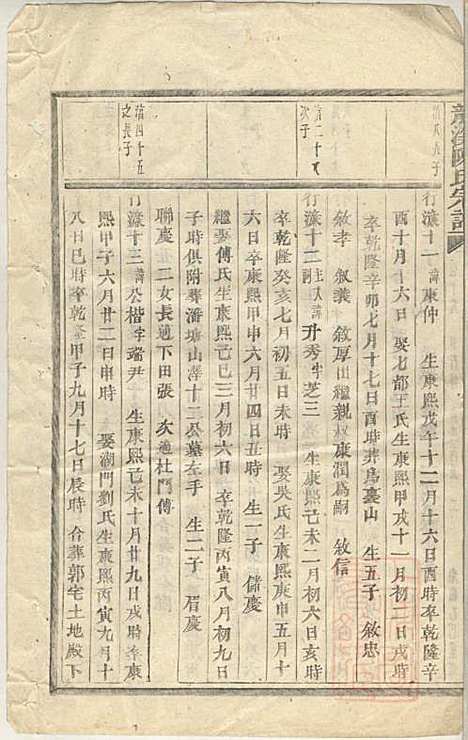 行濠十一 諱康仲 生康熙戊午十二月十六日酉時卒乾隆辛
酉十月十六日 娶七都王氏生康熙甲戌十一月初二日戌時
卒乾隆辛卯七月十七日酉時葬烏臺山 生五子 敘忠
敘孝 敘義 敘厚出繼親叔康潤爲嗣 敘信
落二十
次子
行濠十二 諱升秀字芝三 生康熙己未二月初六日亥時
卒乾隆癸亥七月初五日未時 娶吳氏生康熙庚申五月十
六日卒康熙甲申六月廿四日丑時 生一子 儲慶
繼娶傅氏生康熙己巳三月初六日 卒乾隆丙寅八月初九日
子時俱附葬潘塘山澤十二公墓左手 生二子 眉慶
聯慶 二女長適下田張 次適杜門傅
落四十五
之長子
行濠十三 諱公楷字瑞尹 生康熙己未十月廿九日戌時卒康
熙甲子六月廿二日申時 娶湖門劉氏生康熙丙寅九月十
八日巳時卒乾隆甲子九月十七日辰時 合葬郭宅土地殿下